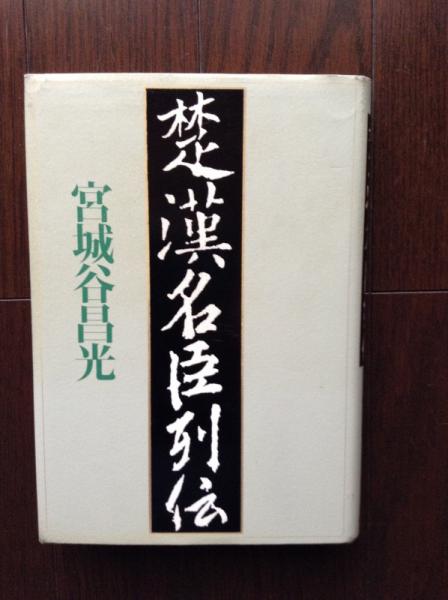 楚漢名臣列伝
宮城谷昌光